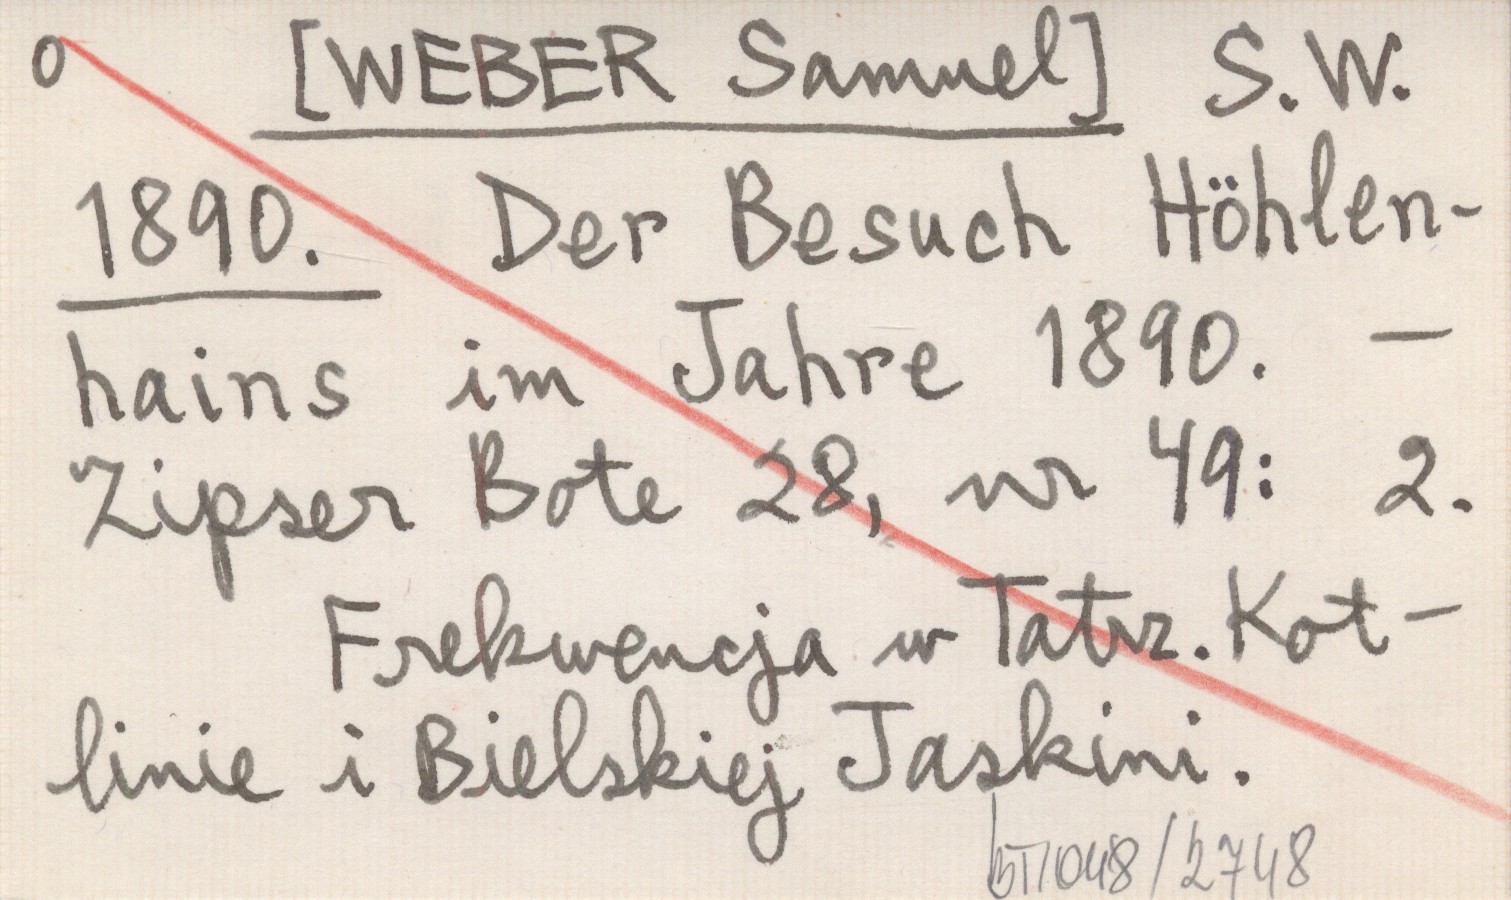 0 [WEBER Samuel] S. W.
1890. Der Besuch Höhlen-
hains im Jahre 1890. —
Zipser Bote 28, nr 49: 2.
Frekwencja w Tatrz. Kot-
linie i Bielskiej Jaskini.
/2748